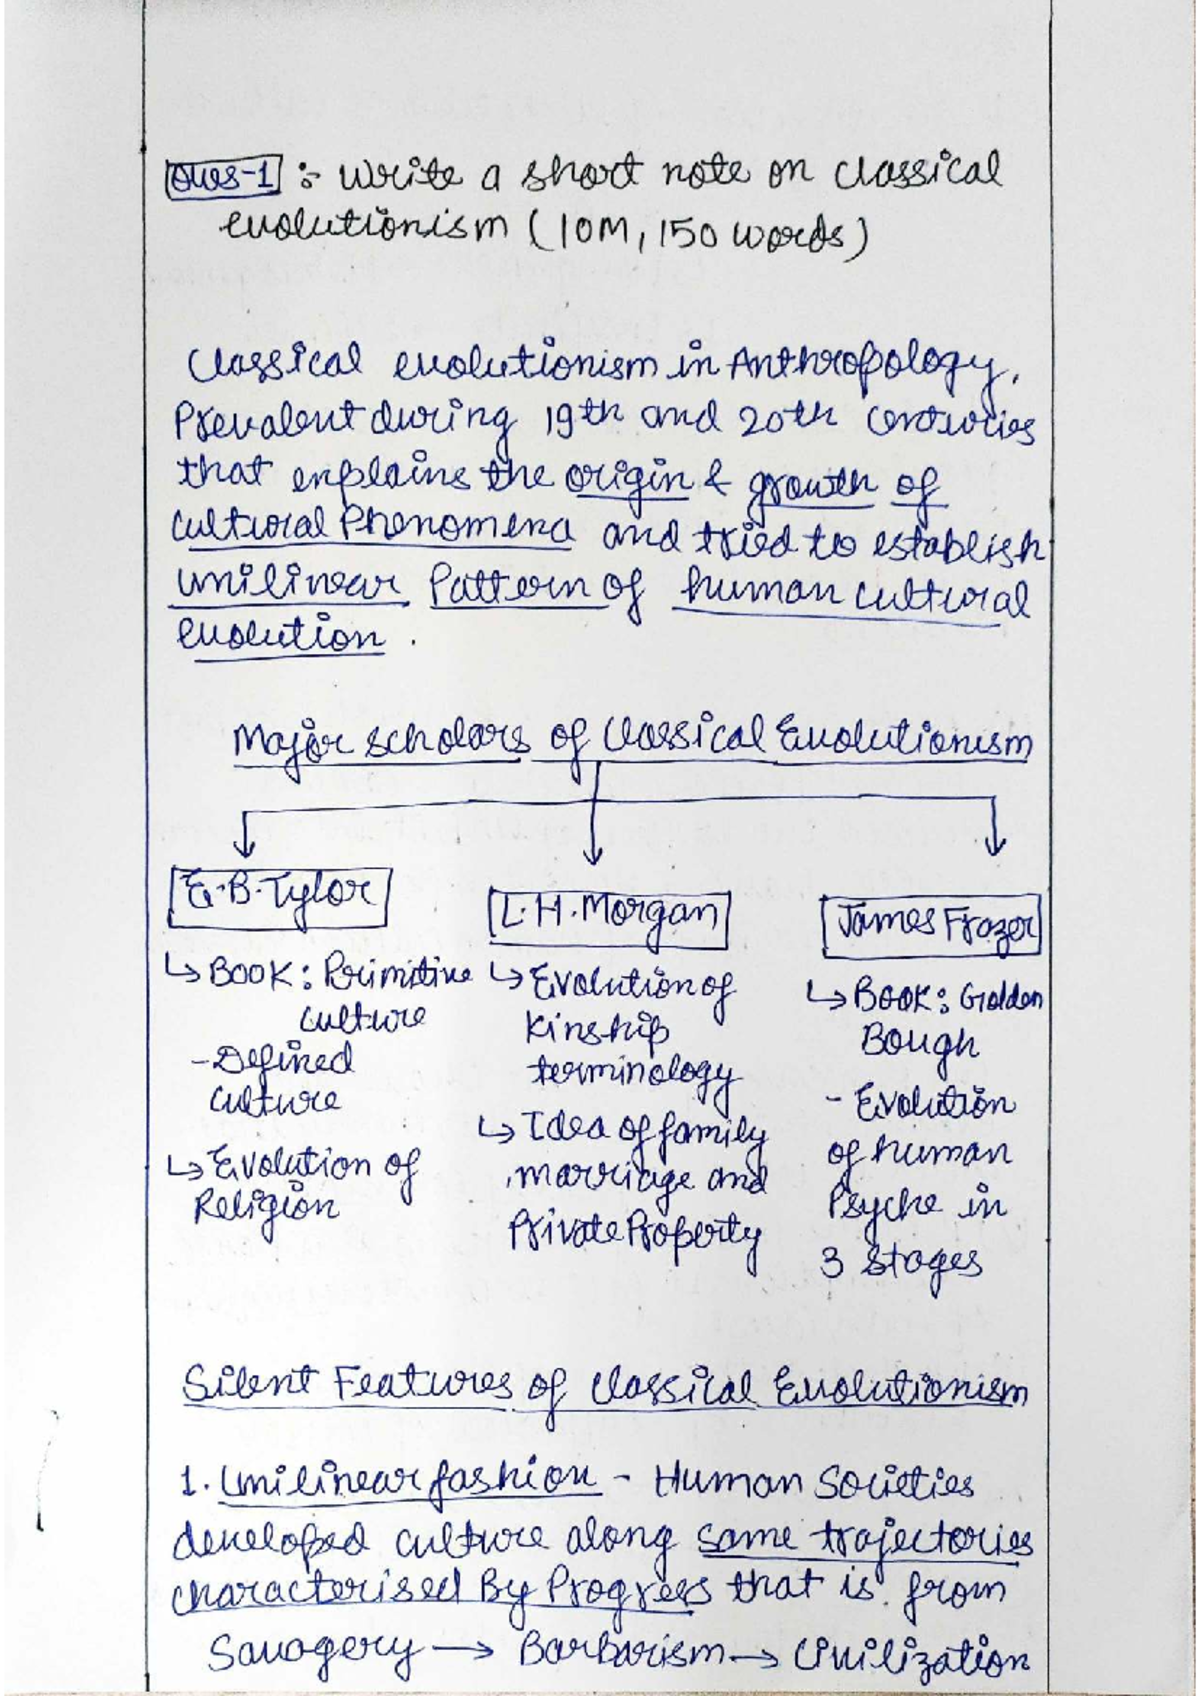 Ques-1 :- Write a short note on classical
evolutionism (10M, 150 words)
Classical evolutionism in Anthropology,
Prevalent during 19th and 20th centuries
that explains the origin & growth of
cultural Phenomena and tried to establish
unilinear Pattern of human cultural
evolution.
Major scholars of Classical Evolutionism
E.B.Tylor
L.H.Morgan
James Frazer
↳ BOOK: Primitive
culture
- Defined
culture
↳ Evolution of
Religion
↳ Evolution of
Kinship
terminology
↳ Idea of family
, marriage and
Private Property
↳ BOOK: Golden
Bough
- Evolution
of human
Psyche in
3 stages
Silent Features of Classical Evolutionism
1. Unilinear fashion - Human Societies
developed culture along same trajectories
characterised By Progress that is from
Savagery → Barbarism → Civilization